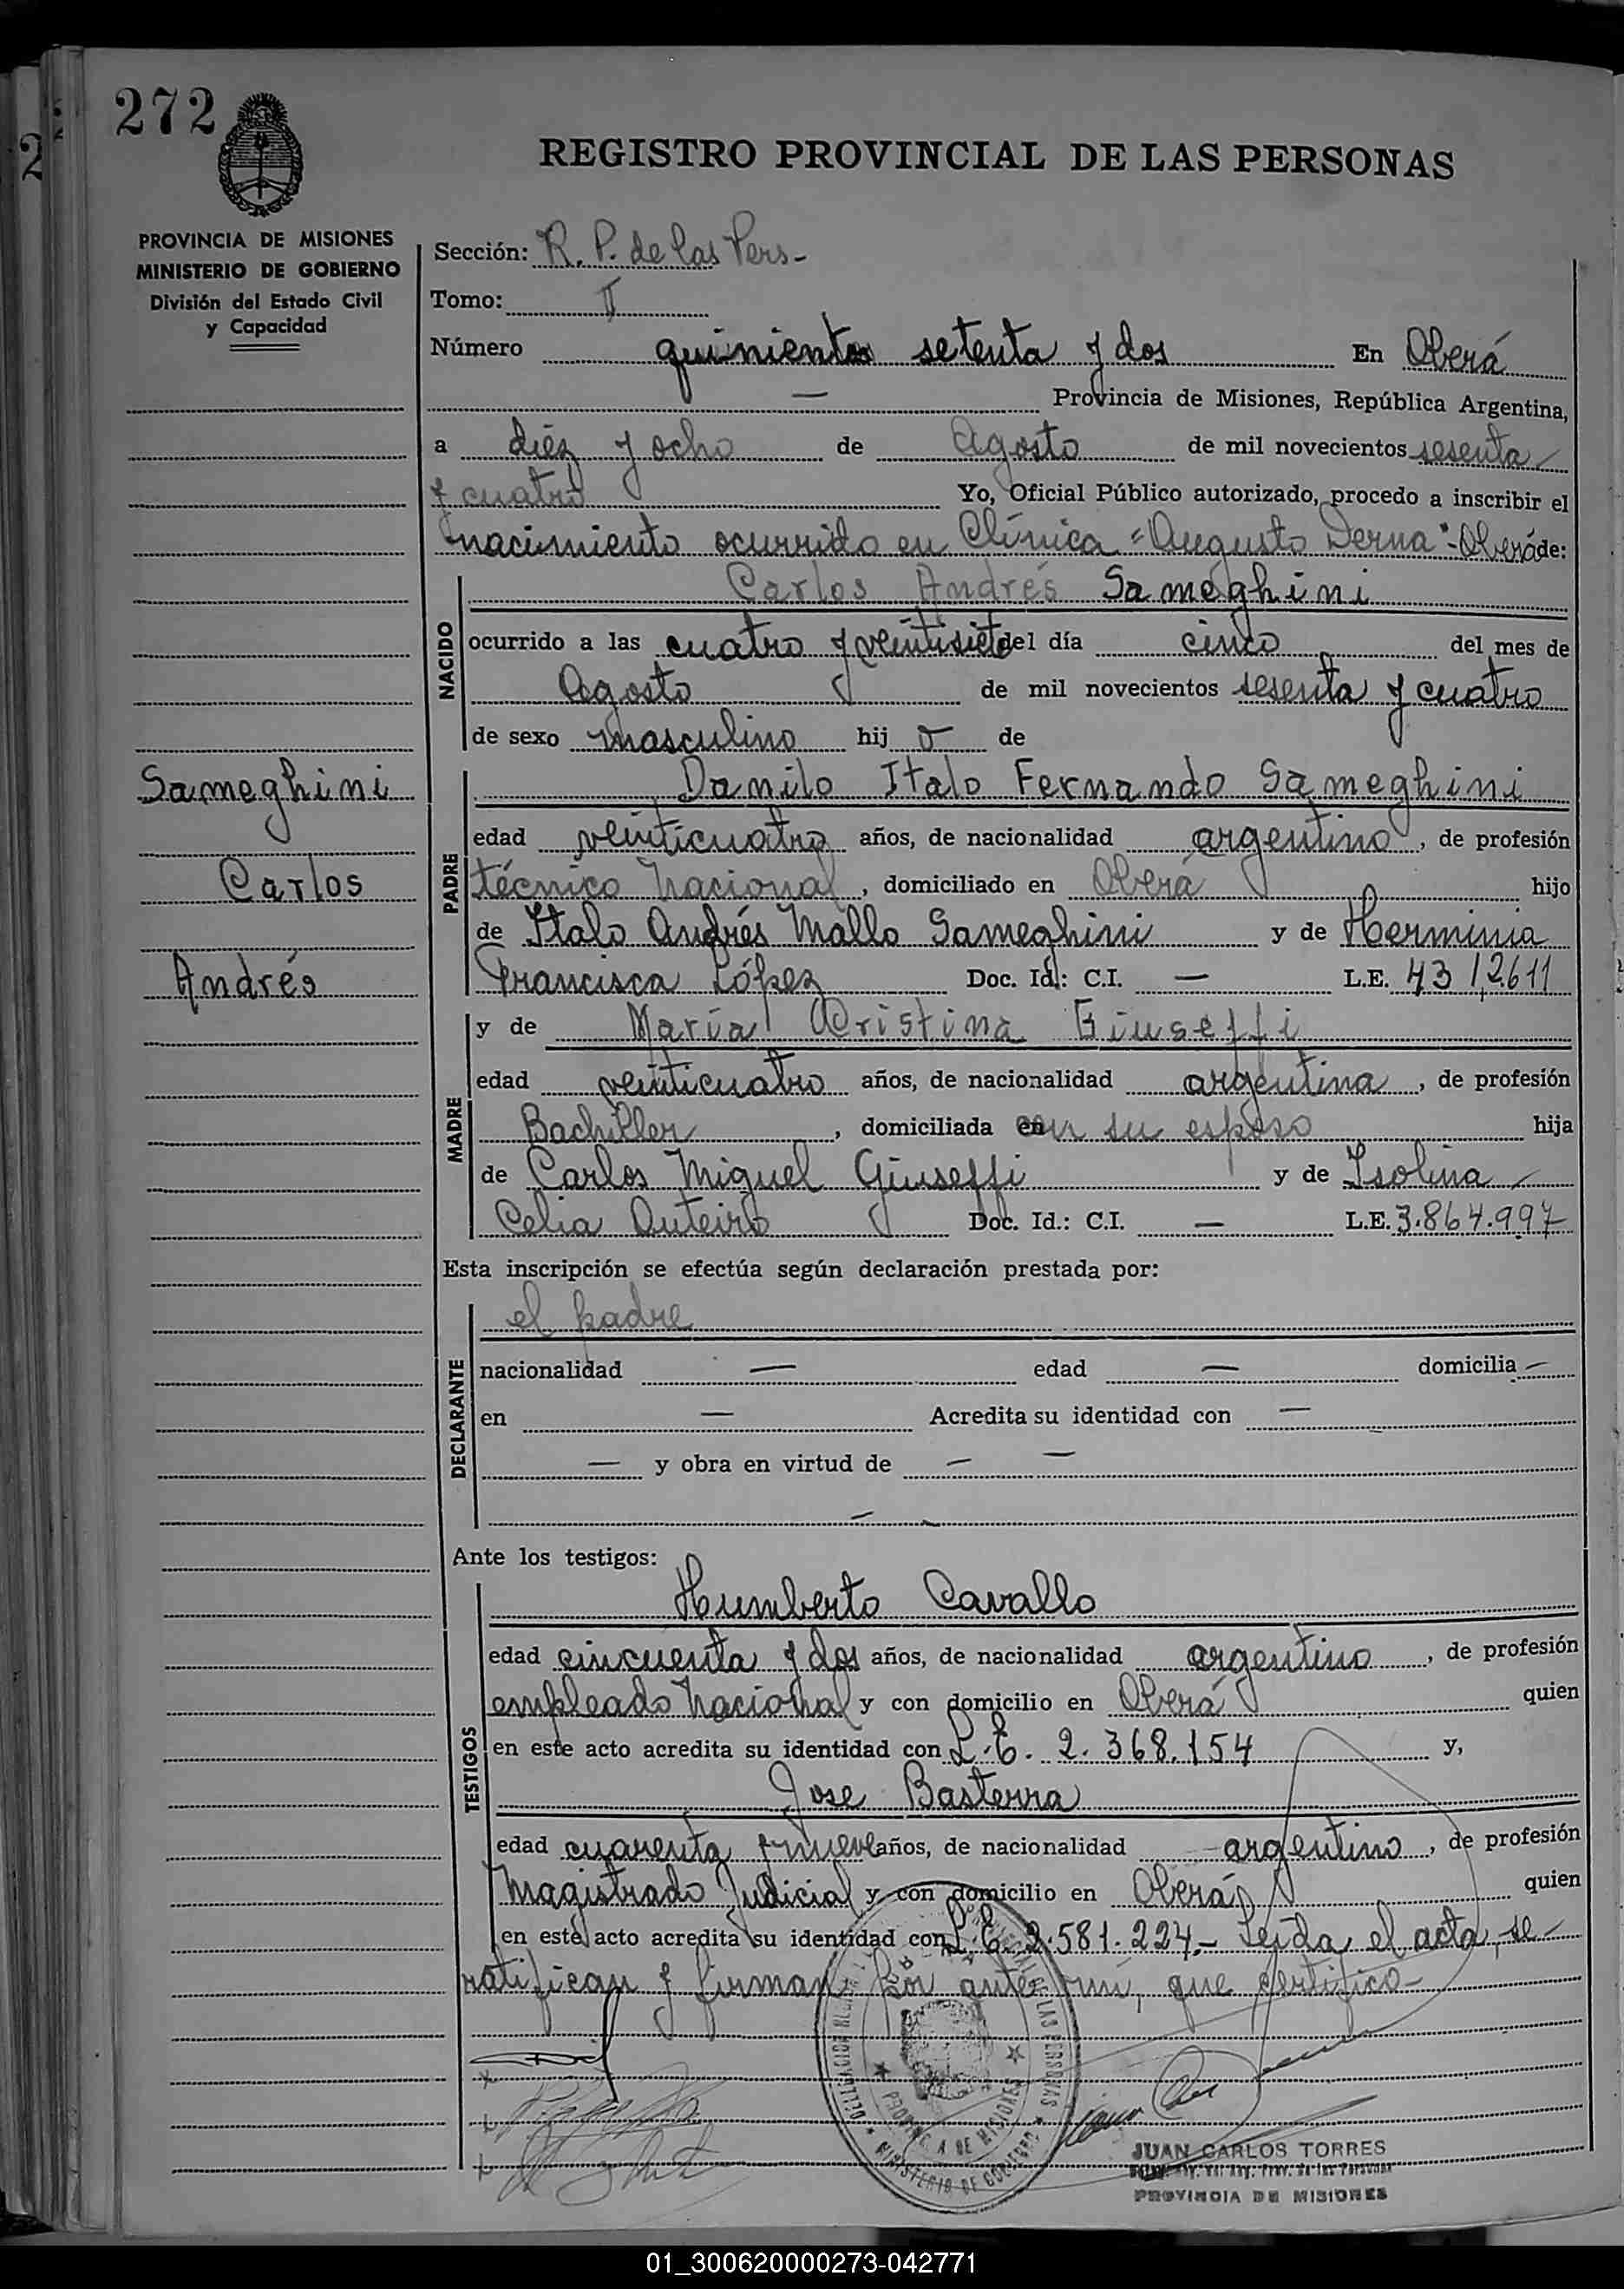 272
REGISTRO PROVINCIAL DE LAS PERSONAS
PROVINCIA DE MISIONES
MINISTERIO DE GOBIERNO
División del Estado Civil
y Capacidad
Sección: R. P. de las Pers-
Tomo: II
Número quinientos setenta y dos En Oberá
— Provincia de Misiones, República Argentina,
a diéz y ocho de Agosto de mil novecientos sesenta
y cuatro Yo, Oficial Público autorizado, procedo a inscribir el
nacimiento ocurrido en Clínica "Augusto Derna"-Oberá de:
NACIDO
Carlos Andrés Sameghini
ocurrido a las cuatro y veintisiete del día cinco del mes de
Agosto de mil novecientos sesenta y cuatro
de sexo masculino hij o de
Sameghini
Carlos
Andrés
PADRE
Danilo Italo Fernando Sameghini
edad veinticuatro años, de nacionalidad argentino, de profesión
técnico nacional, domiciliado en Oberá hijo
de Italo Andrés Mallo Sameghini y de Herminia
Francisca López Doc. Id.: C.I. — L.E.
MADRE
y de María Cristina Giuseffi
edad veinticuatro años, de nacionalidad argentina, de profesión
Bachiller, domiciliada con su esposo hija
de Carlos Miguel Giuseffi y de Isolina
Celia Outeiro Doc. Id.: C.I. — L.E. 3.864.997
Esta inscripción se efectúa según declaración prestada por:
DECLARANTE
el padre
nacionalidad — edad — domicilia —
en — Acredita su identidad con —
— y obra en virtud de — —
—
Ante los testigos:
TESTIGOS
Humberto Cavallo
edad cincuenta y dos años, de nacionalidad argentino, de profesión
empleado nacional y con domicilio en Oberá quien
en este acto acredita su identidad con L.E. 2.368.154 y,
Jose Basterra
edad cuarenta y nueve años, de nacionalidad argentino, de profesión
Magistrado Judicial y con domicilio en Oberá quien
en este acto acredita su identidad con L.E. 2.581.224.- Leída el acta, se-
ratifican y firman por ante mí, que certifico-
PROVINCIA DE MISIONES
MINISTERIO DE GOBIERNO
JUAN CARLOS TORRES
PROVINCIA DE MISIONES
01_300620000273-042771